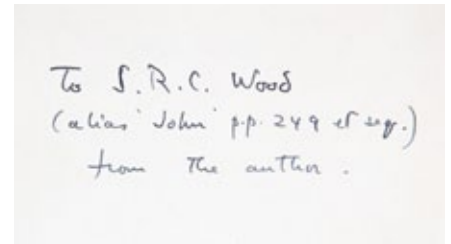 To S.R.C. Wood
(alias 'John' p.p. 249 et seq.)
from the author.